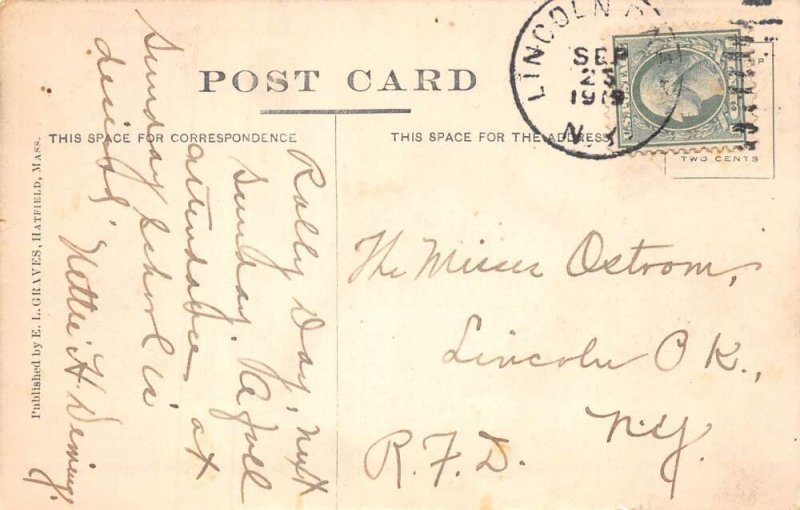 POST CARD
THIS SPACE FOR CORRESPONDENCE
THIS SPACE FOR THE ADDRESS
TWO CENTS
LINCOLN
SEP
23
N.Y.
Published by E. L. GRAVES, HATFIELD, MASS.
Rally Day, next
Sunday. A full
attendance at
Sunday School is
desired.
Nettie H. Deming.
The Misses Ostrom,
Lincoln PK.,
R.F.D. N.Y.